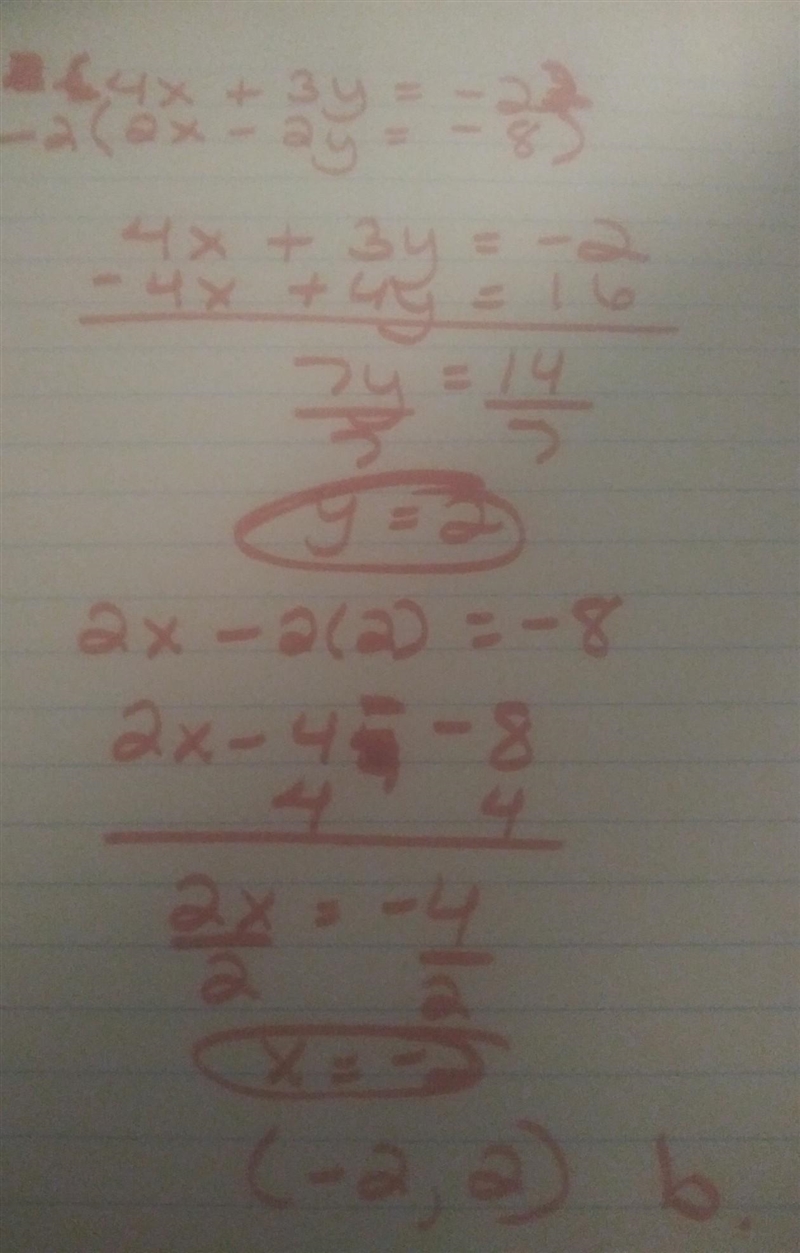 4x + 3y = -2
-2(2x - 2y = -8)
4x + 3y = -2
-4x + 4y = 16
7y = 14
7 7
y = 2
2x - 2(2) = -8
2x - 4 = -8
4 4
2x = -4
2 2
x = -2
(-2, 2) b.